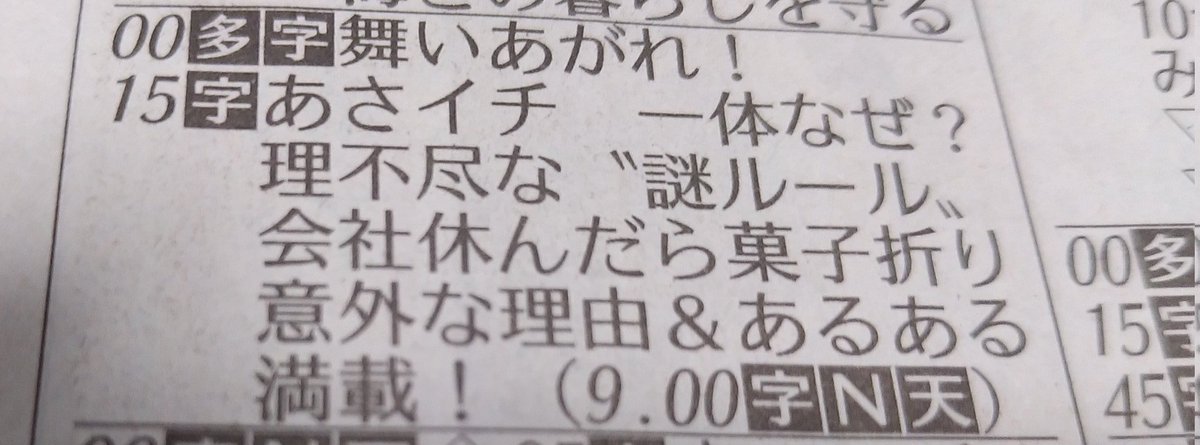 の暮らしを守る
00多字舞いあがれ！
15字あさイチ　一体なぜ？
理不尽な〝謎ルール〟
会社休んだら菓子折り
意外な理由＆あるある
満載！（9.00字N天）
10
み
00多
15字
45字